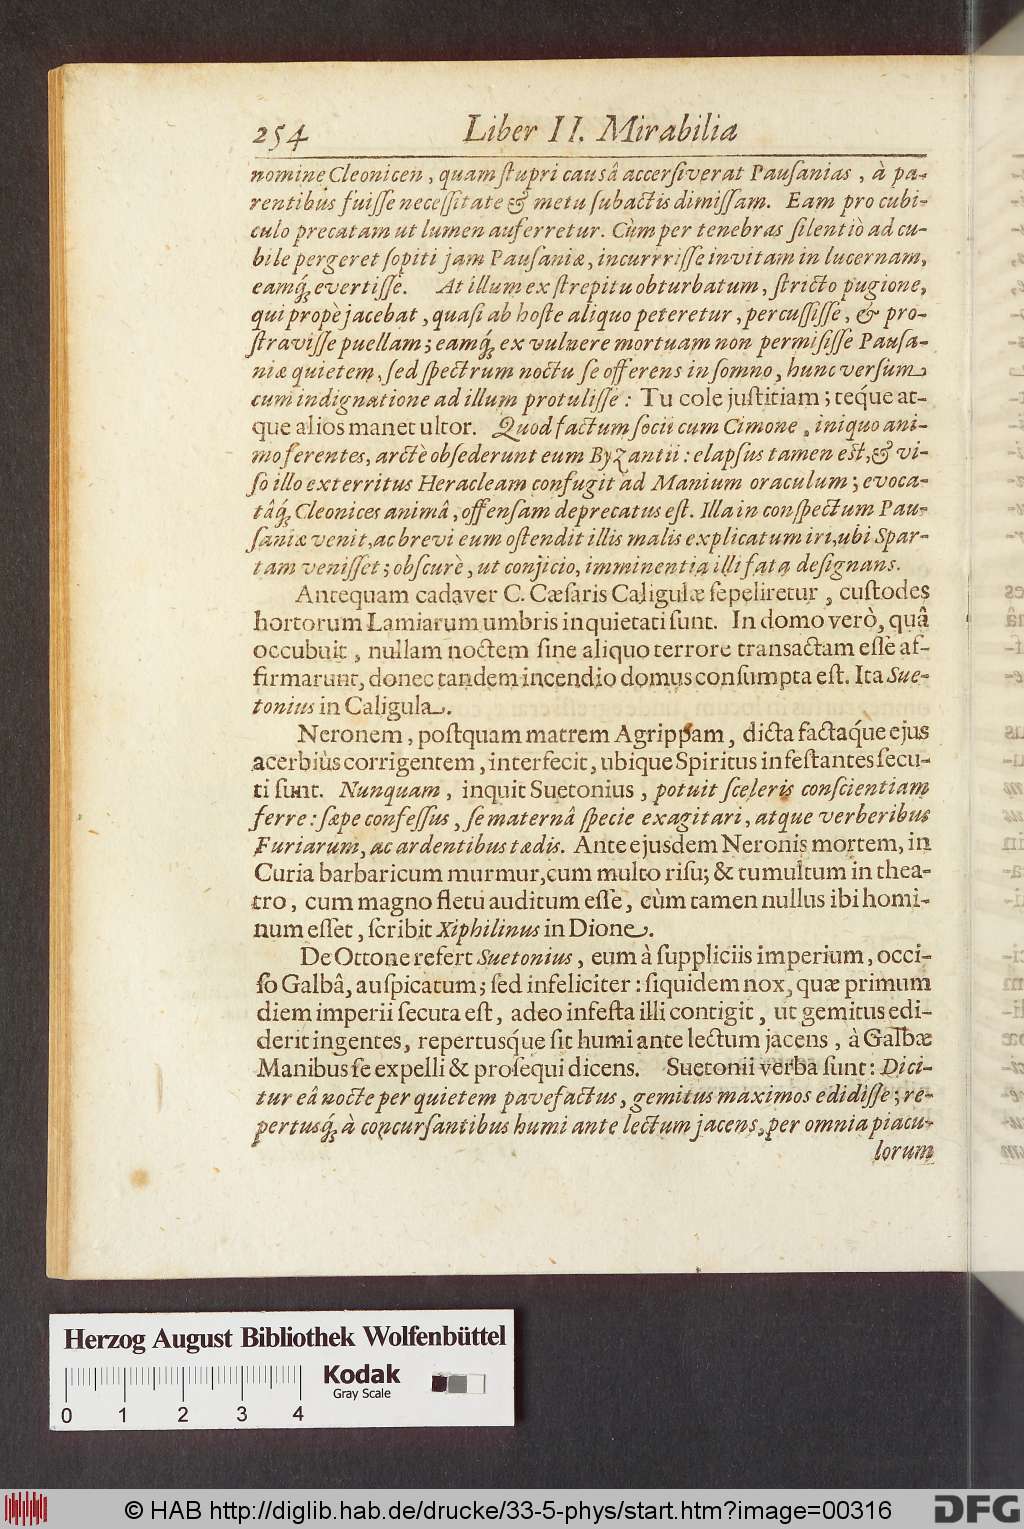 254 Liber II. Mirabilia
nomine Cleonicen, quam ſtupri causâ accerſiverat Pauſanias, à pa-
rentibus fuiſſe neceſſitate & metu ſubactis dimiſſam. Eam pro cubi-
culo precatam ut lumen auferretur. Cùm per tenebras ſilentiò ad cu-
bile pergeret ſopiti jam Pauſaniæ, incurrriſſe invitam in lucernam,
eamq́; evertiſſe. At illum ex ſtrepitu obturbatum, ſtricto pugione,
qui propè jacebat, quaſi ab hoſte aliquo peteretur, percuſſiſſe, & pro-
ſtraviſſe puellam; eamq́; ex vulnere mortuam non permiſiſſe Pauſa-
niæ quietem, ſed ſpectrum noctu ſe offerens in ſomno, hunc verſum
cum indignatione ad illum protuliſſe: Tu cole juſtitiam; téque at-
que alios manet ultor. Quod factum ſocii cum Cimone, iniquo ani-
mo ferentes, arctè obſederunt eum Byzantii: elapſus tamen eſt, & vi-
ſo illo exterritus Heracleam confugit ad Manium oraculum; evoca-
tâq́; Cleonices animâ, offenſam deprecatus eſt. Illa in conſpectum Pau-
ſaniæ venit, ac brevi eum oſtendit illis malis explicatum iri, ubi Spar-
tam veniſſet; obſcurè, ut conjicio, imminentia illi fata deſignans.
Antequam cadaver C. Cæſaris Caligulæ ſepeliretur, cuſtodes
hortorum Lamiarum umbris inquietati ſunt. In domo verò, quâ
occubuit, nullam noctem ſine aliquo terrore transactam eſſe af-
firmarunt, donec tandem incendio domus conſumpta eſt. Ita Sue-
tonius in Caligula.
Neronem, poſtquam matrem Agrippam, dicta factaq́ue ejus
acerbiùs corrigentem, interfecit, ubique Spiritus infeſtantes ſecu-
ti ſunt. Nunquam, inquit Suetonius, potuit ſceleris conſcientiam
ferre: ſæpe confeſſus, ſe maternâ ſpecie exagitari, atque verberibus
Furiarum, ac ardentibus tædis. Ante ejusdem Neronis mortem, in
Curia barbaricum murmur, cum multo riſu; & tumultum in thea-
tro, cum magno fletu auditum eſſe, cùm tamen nullus ibi homi-
num eſſet, ſcribit Xiphilinus in Dione.
De Ottone refert Suetonius, eum à ſuppliciis imperium, occi-
ſo Galbâ, auſpicatum; ſed infeliciter: ſiquidem nox, quæ primum
diem imperii ſecuta eſt, adeo infeſta illi contigit, ut gemitus edi-
derit ingentes, repertusq́ue ſit humi ante lectum jacens, à Galbæ
Manibus ſe expelli & proſequi dicens. Suetonii verba ſunt: Dici-
tur eâ nocte per quietem pavefactus, gemitus maximos edidiſſe; re-
pertusq́; à concurſantibus humi ante lectum jacens, per omnia piacu-
lorum
Herzog August Bibliothek Wolfenbüttel
Kodak
Gray Scale
0 1 2 3 4
© HAB http://diglib.hab.de/drucke/33-5-phys/start.htm?image=00316
DFG